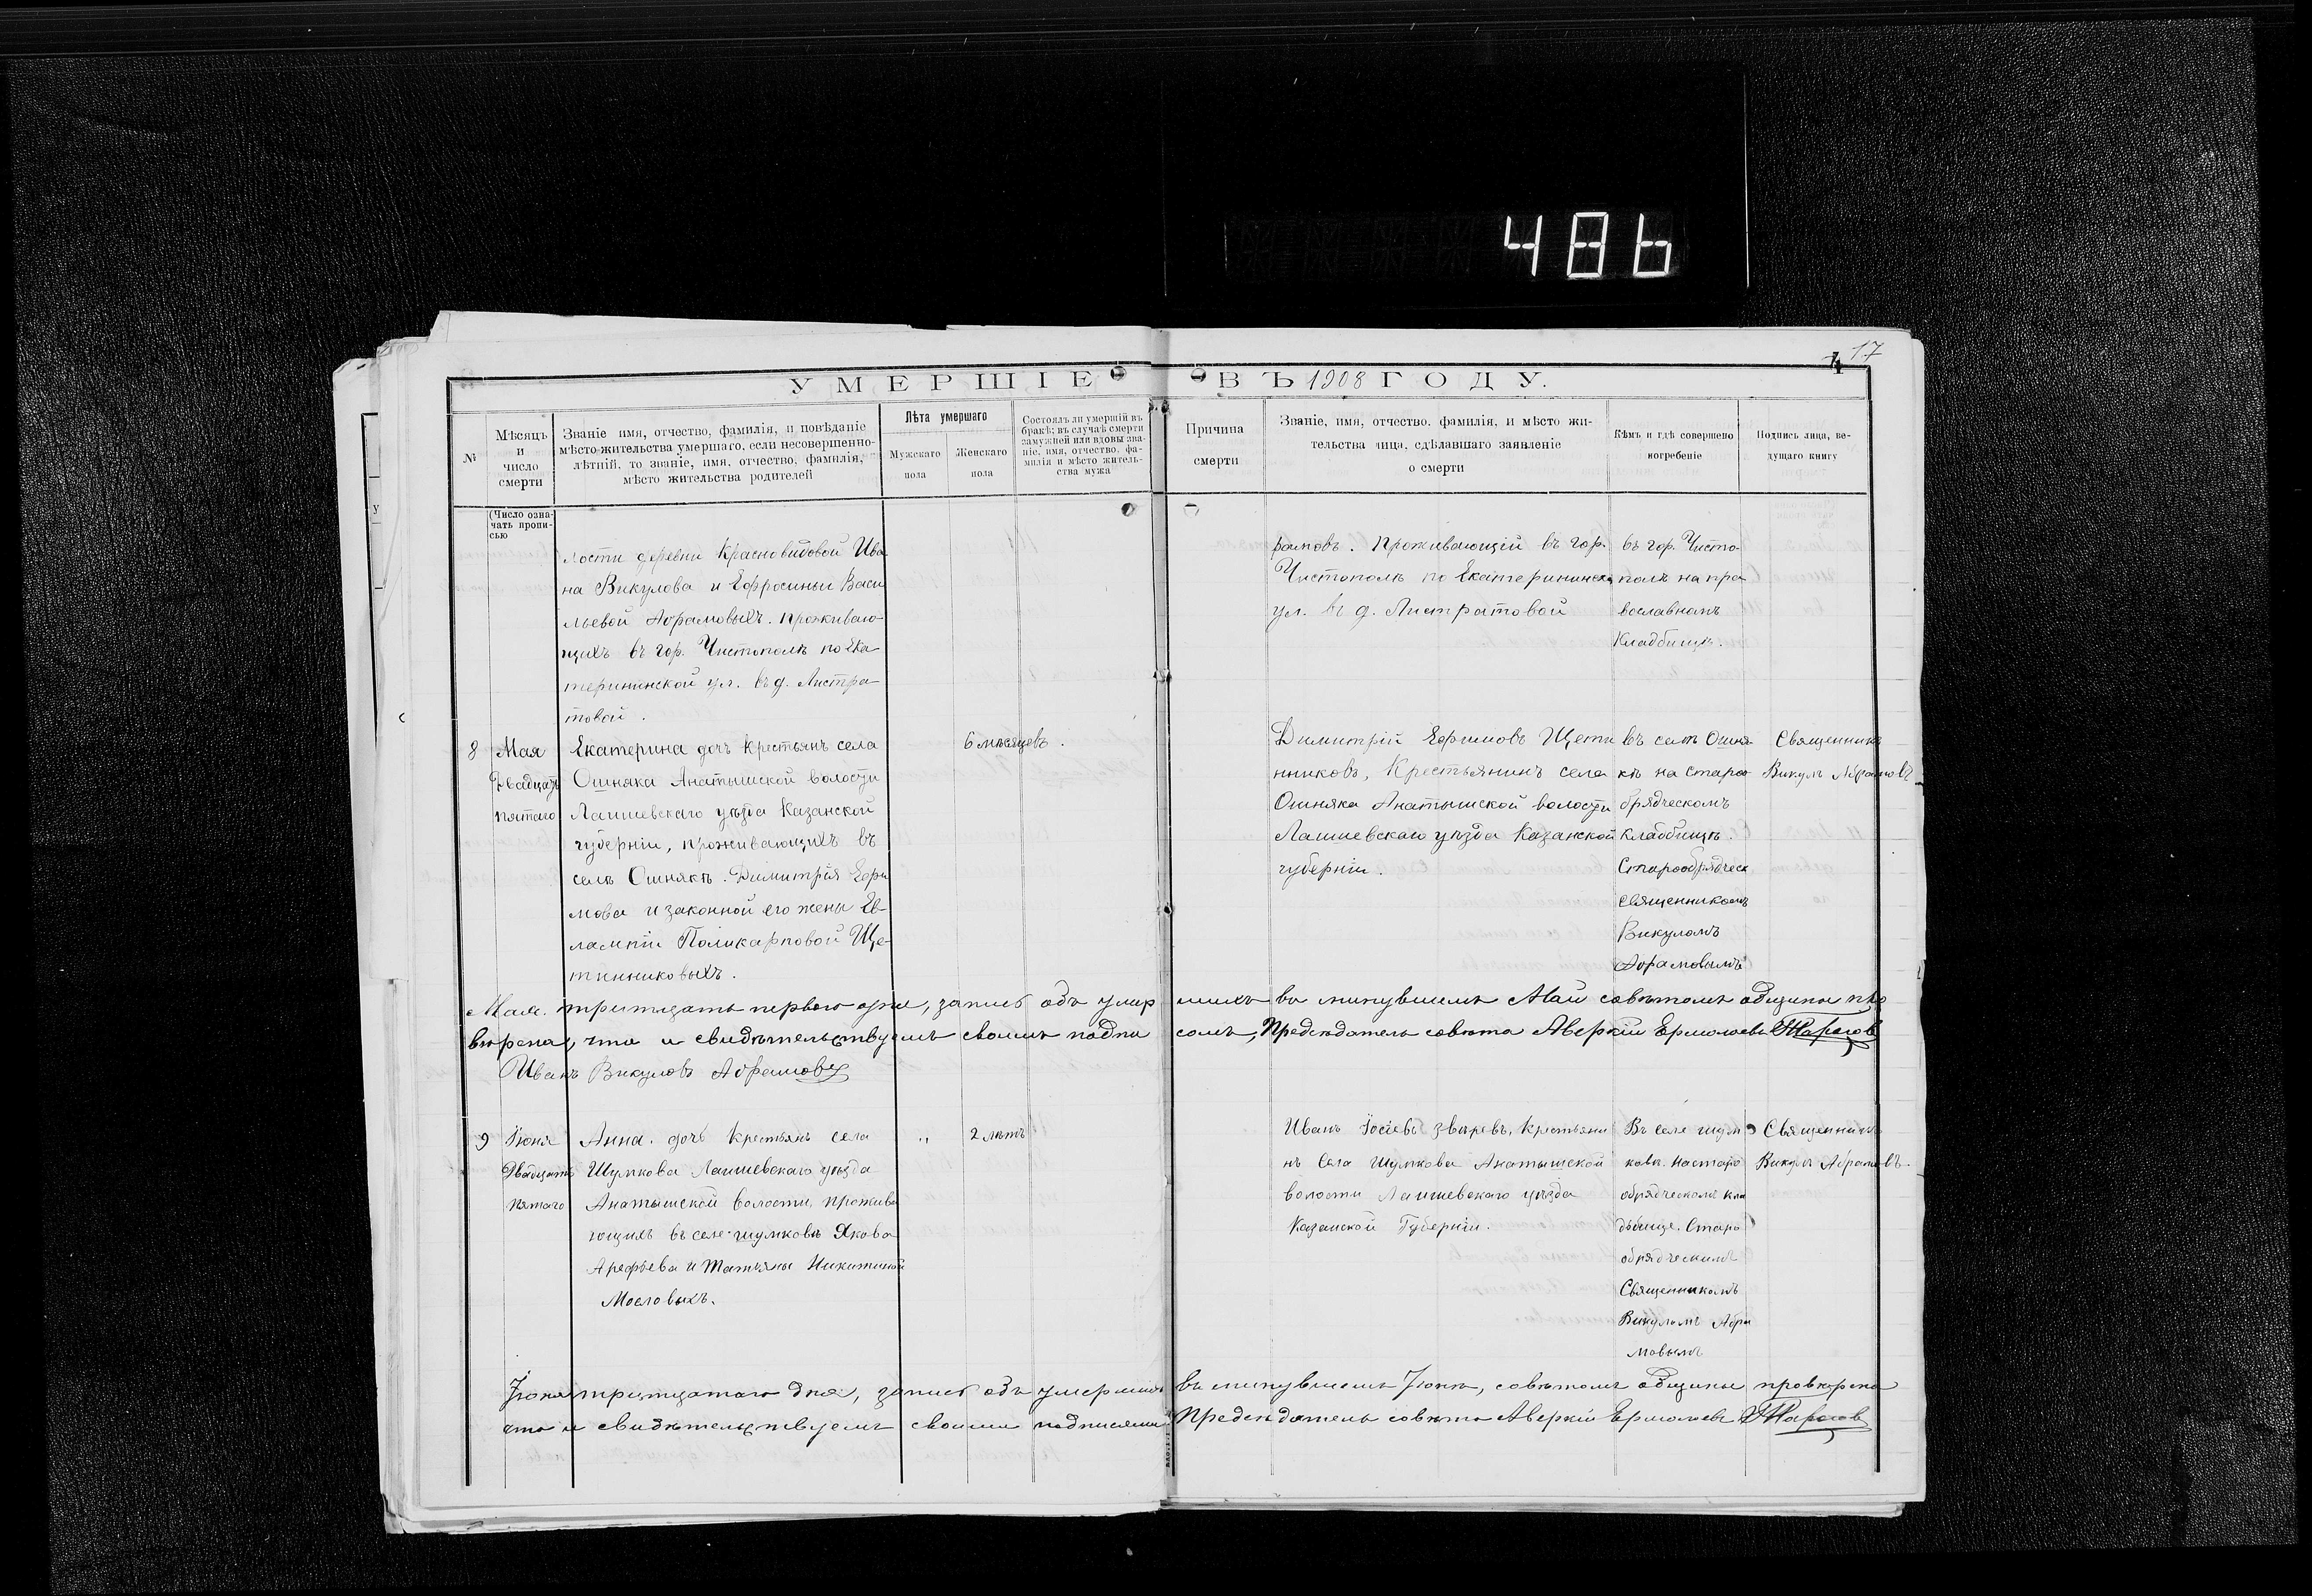 486
17
4
УМЕРШІЕ ВЪ 1908 ГОДУ.
№
Мѣсяцъ
и
число
смерти
Званіе имя, отчество, фамилія, и повѣданіе
мѣсто-жительства умершаго, если несовершенно-
лѣтній, то званіе, имя, отчество, фамилія,
мѣсто жительства родителей
Лѣта умершаго
Мужскаго
пола
Женскаго
пола
Состоялъ ли умершій въ
бракѣ; въ случаѣ смерти
замужней или вдовы зва-
ніе, имя, отчество, фа-
милія и мѣсто житель-
ства мужа
Причина
смерти
Званіе, имя, отчество, фамилія, и мѣсто жи-
тельства лица, сдѣлавшаго заявленіе
о смерти
Кѣмъ и гдѣ совершено
погребеніе
Подпись лица, ве-
дущаго книгу
(Число озна-
чать пропи-
сью
лости деревни Красновидовой Ива
на Викулова и Ефросиньи Васи
льевой Абрамовыхъ. проживаю-
щихъ въ гор. Чистополѣ по Ека
терининской ул. въ д. Листра-
товой.
рамовъ. Проживающій въ гор.
Чистополѣ по Екатерининска
ул. въ д. Листратовой
въ гор. Чисто-
полѣ на пра
вославномъ
Кладбищѣ.
8
Мая
Двадцать
пятаго
Екатерина дочь крестьянъ села
Ошняка Анатышской волости
Лаишевскаго уѣзда Казанской
губерніи, проживающихъ въ
селѣ Ошнякѣ. Димитрія Ефи
мова и законной его жены Ев-
лампіи Поликарповой Ще-
тинниковыхъ.
6 мѣсяцевъ.
Димитрій Ефимовъ Щети
нниковъ, Крестьянинъ села
Ошняка Анатышской волости
Лаишевскаго уѣзда Казанской
губерніи.
въ селѣ Ошня-
кѣ на старо
брядческомъ
Кладбищѣ.
Старообрядческ
священникомъ
Викуломъ
Абрамовымъ
Священникъ
Викулъ Абрамовъ
Мая. тритцать первого дня, запись объ умер шихъ въ минувшемъ Маи совѣтомъ общины про
вѣрена, что и свидѣтельствуемъ своимъ подпи сомъ, Предсѣдатель совѣта Аверкій Ермолаевъ
Иванъ Викуловъ Абрамовъ
9
Іюня
Двадцать
пятаго
Анна. дочь крестьянъ села
Шумкова Лаишевскаго уѣзда
Анатышской волости, прожива
ющихъ въ селе шумковѣ Якова
Арефьева и Татьяны Никитиной
Масловыхъ.
„
2 лѣтъ
Иванъ Іосіевъ Звѣревъ, крестьяни
нъ села Шумкова Анатышской
волости Лаишевскаго уѣзда
Казанской Губерніи.
Въ селе шум
ковѣ. на старо
обрядческомъ кла
дьбище. Старо
обрядческимъ
Священникомъ
Викуломъ Абра
мовымъ
Священникъ
Викулъ Абрамовъ.
Іюня тритцатаго дня, запись объ умершихъ въ минувшемъ Іюнѣ, совѣтомъ общины провѣрена
что и свидѣтельствуемъ своими подписями Предсѣдатель совѣта Аверкій Ермолаевъ